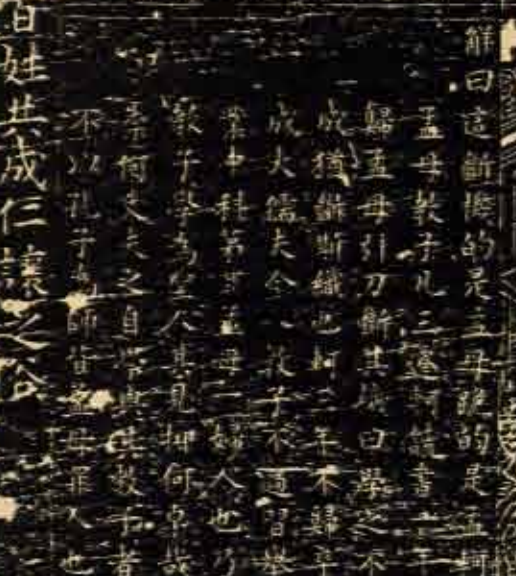 解曰這斷機的是孟母跪的是孟軻
孟母教子凡三遷軻讀書二年
歸孟母引刀斷其機曰學之不
成猶斷斯織也軻三年不歸卒
成大儒夫今人教子不過習舉
業中科第耳孟母一婦人也乃
教子學為聖人其見抑何卓哉
柰何丈夫之自學與其教子者
不以孔子為師皆孟母罪人也
百姓共成仁讓之俗